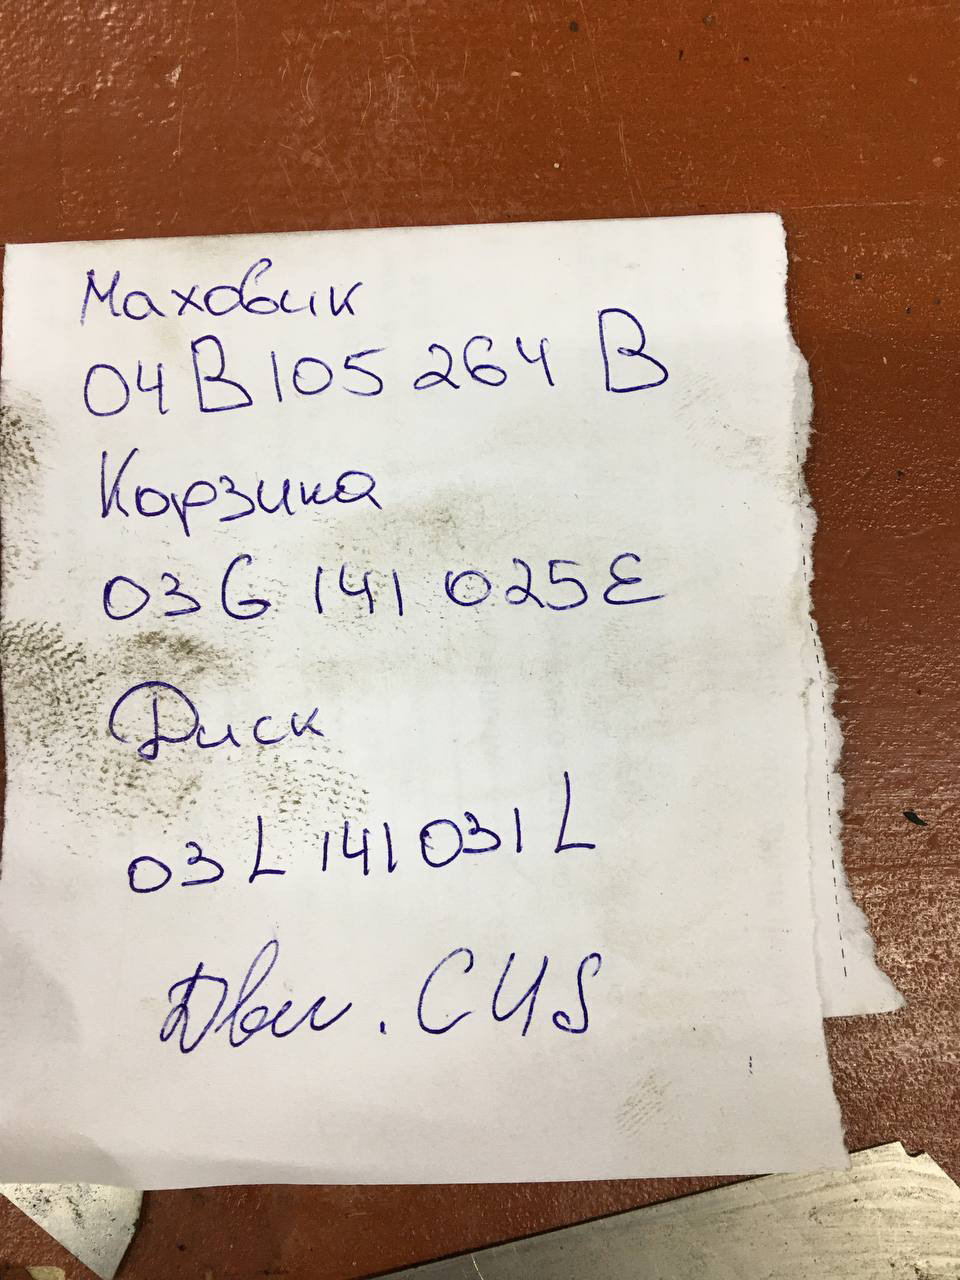 Маховик
04B105 264 B
Корзина
03G 141 025E
Диск
03L 141 031 L
Двиг. CUS